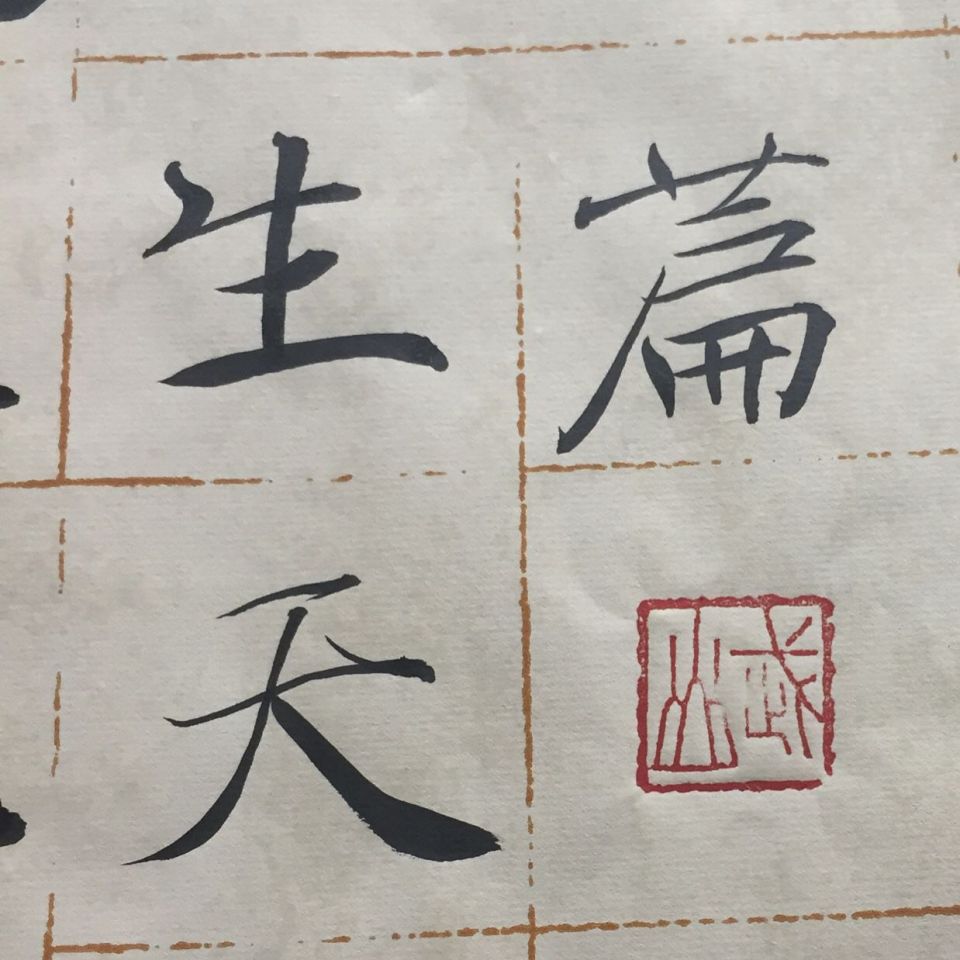 篇
生天